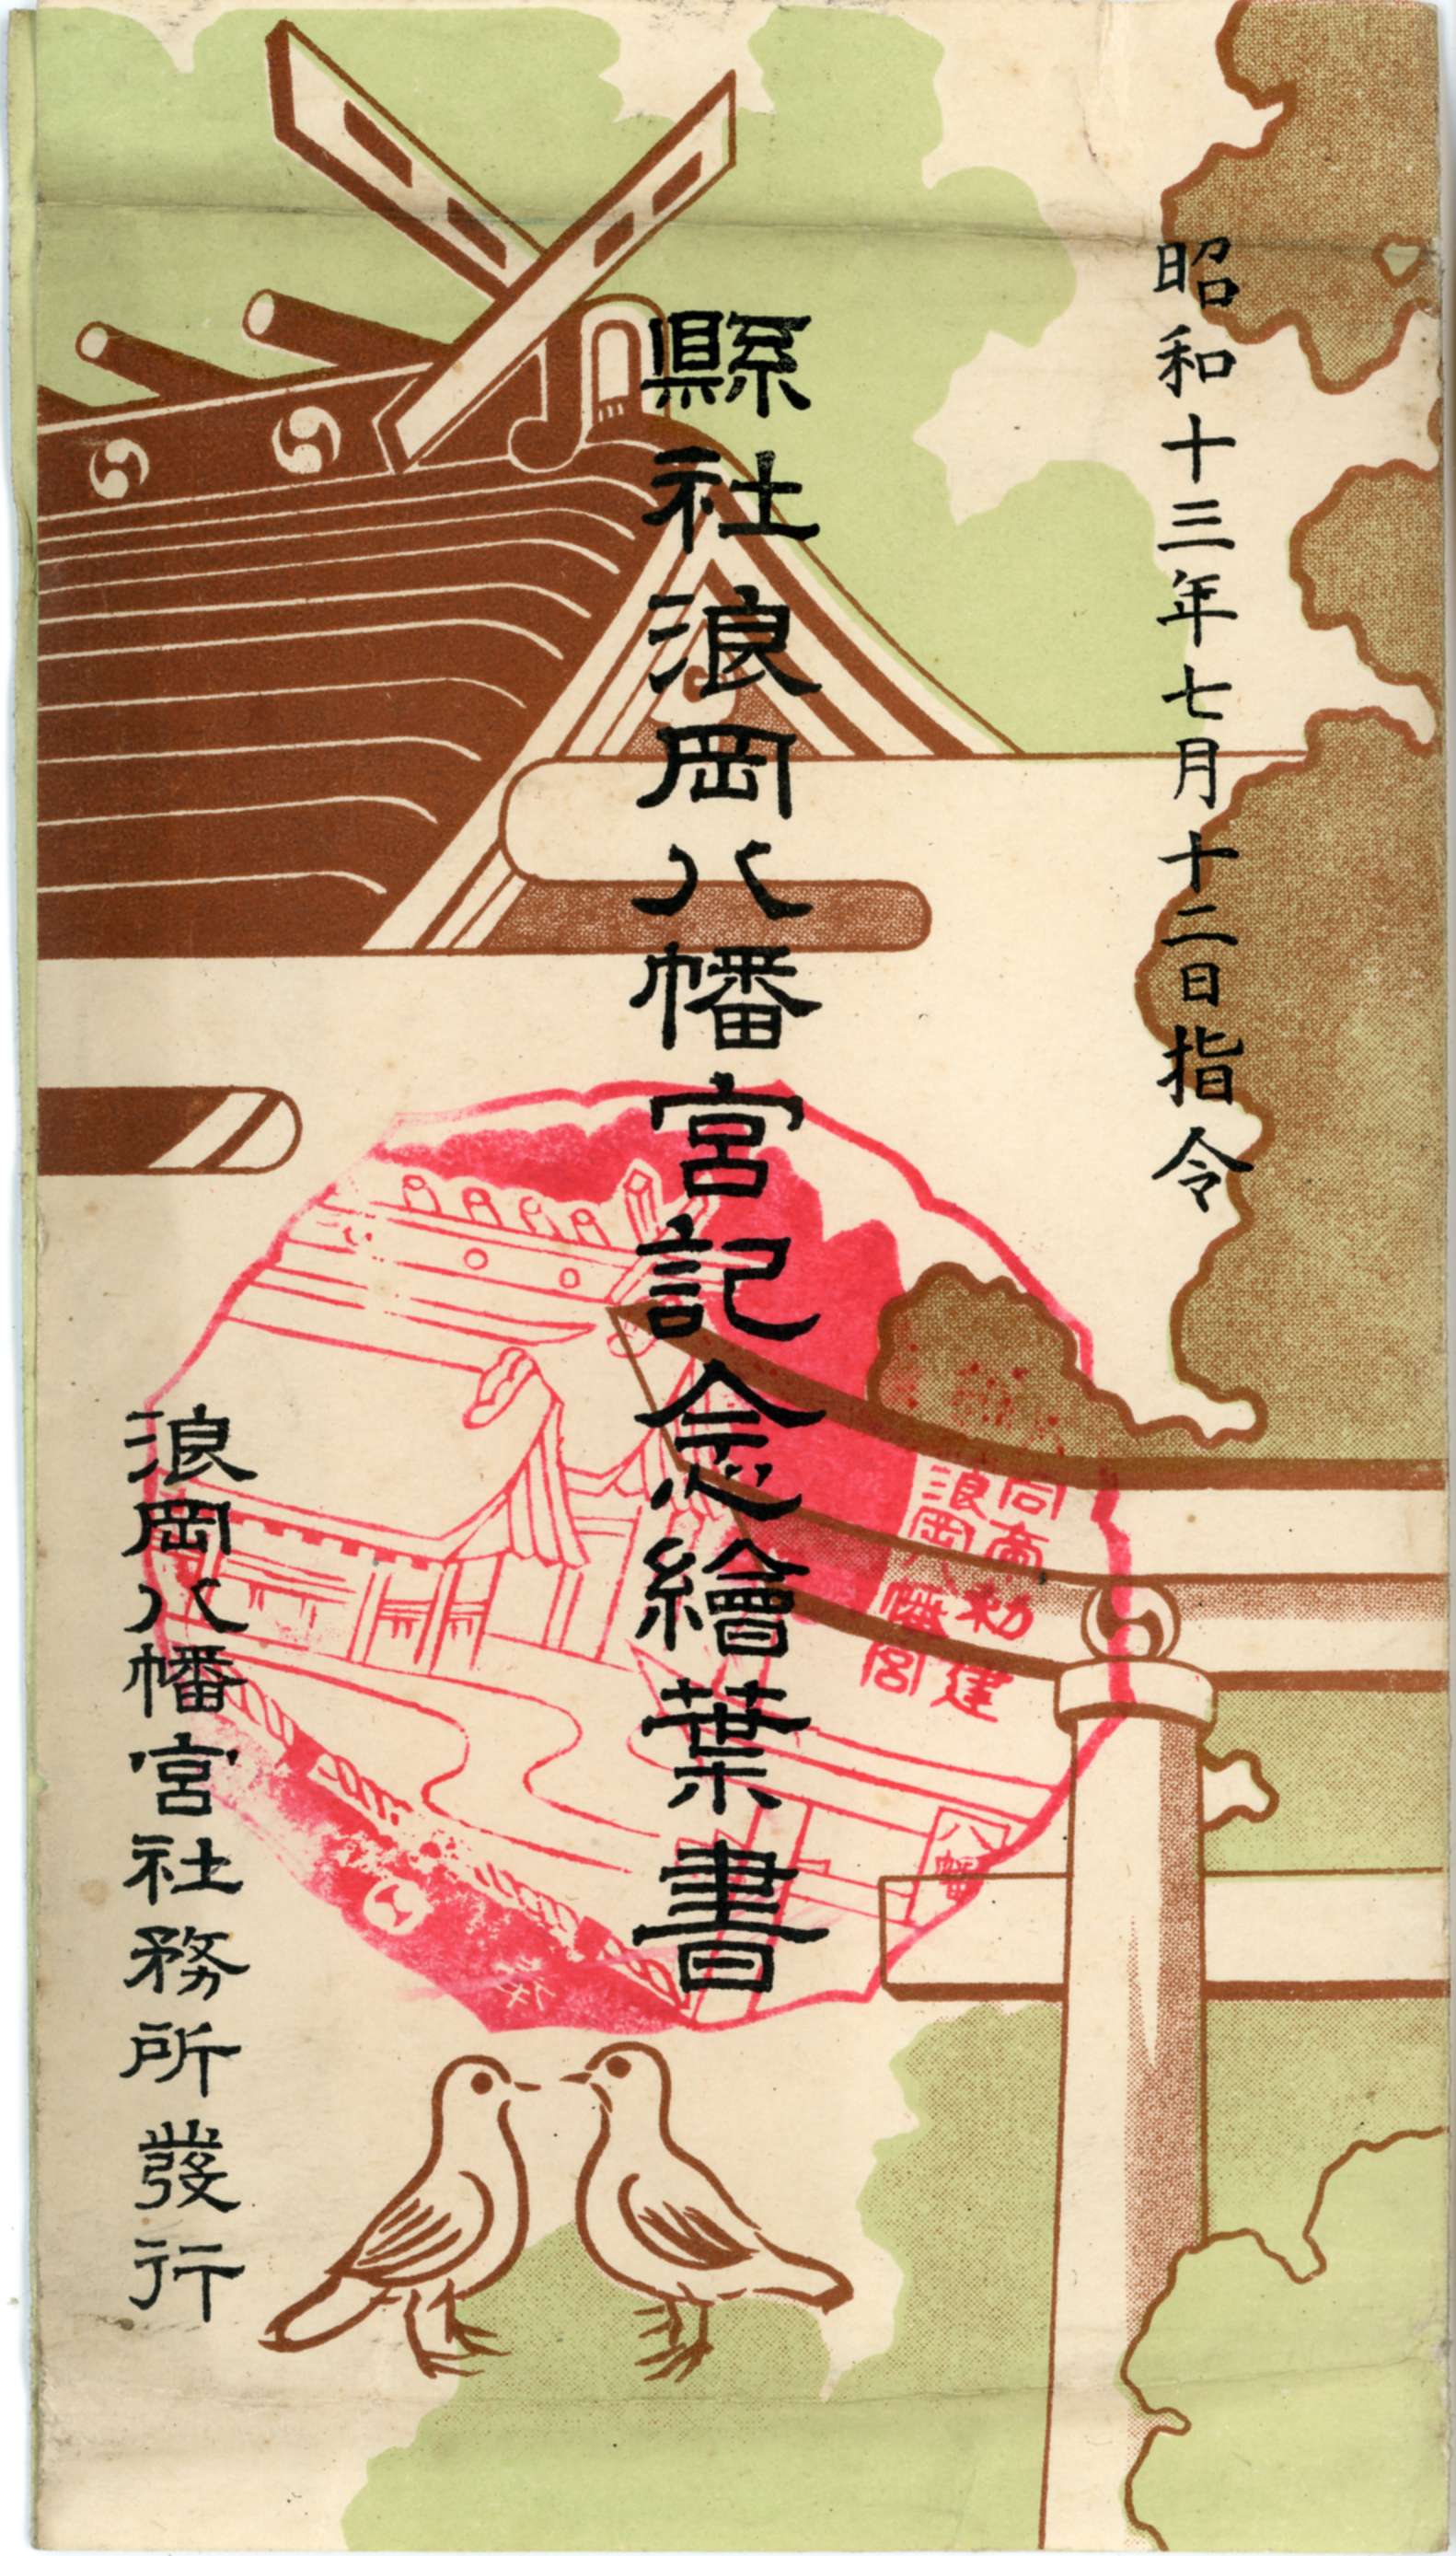 昭和十三年七月十二日指令
縣社浪岡八幡宮記念繪葉書
浪岡八幡宮社務所發行
勅建
浪岡八幡宮
八幡